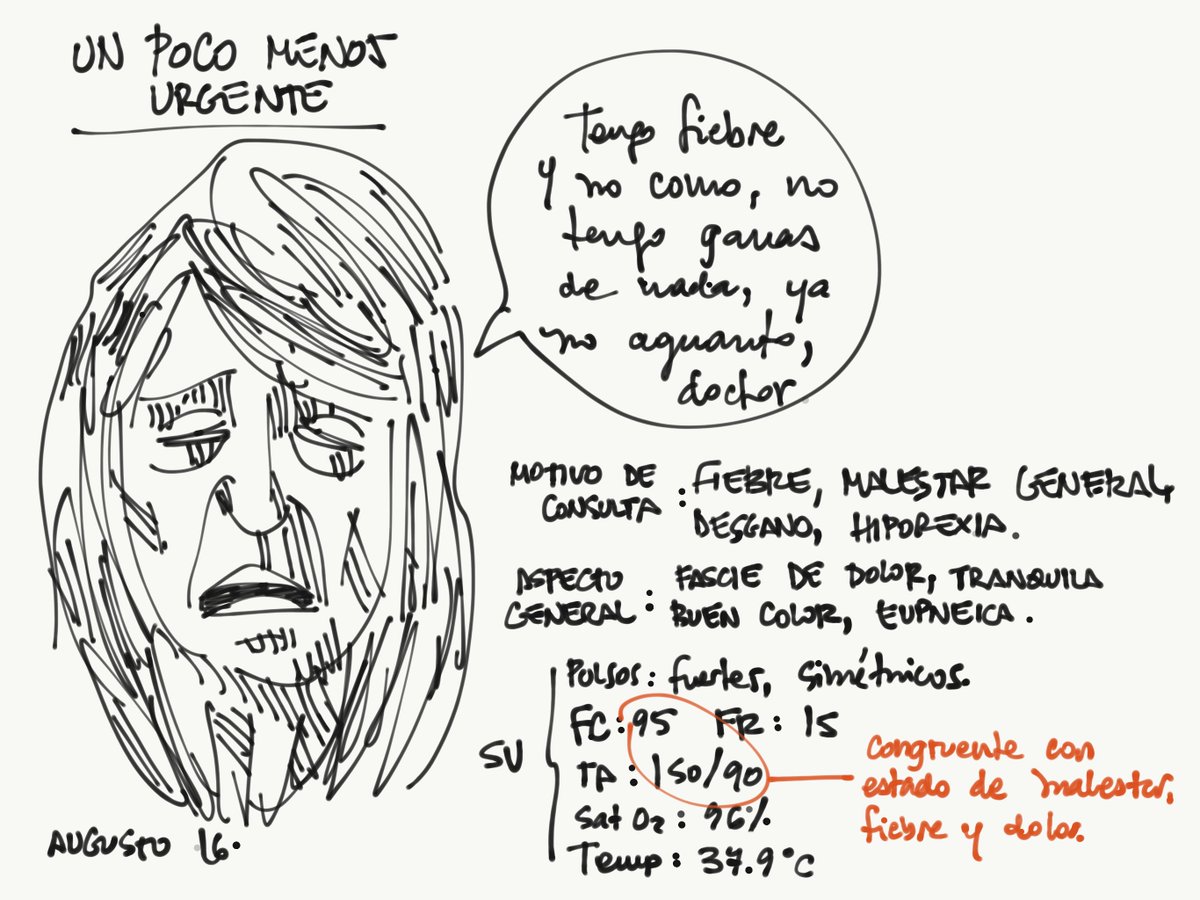 UN POCO MENOS
URGENTE
Tengo fiebre
y no como, no
tengo ganas
de nada, ya
no aguanto,
doctor
MOTIVO DE
CONSULTA : FIEBRE, MALESTAR GENERAL,
DESGANO, HIPOREXIA.
ASPECTO
GENERAL : FASCIE DE DOLOR, TRANQUILA
BUEN COLOR, EUPNEICA.
SV
Pulsos: fuertes, simétricos.
FC: 95 FR: 15
TA: 150/90
Sat O2: 96%
Temp: 37.9°C
Congruente con
estado de malestar,
fiebre y dolor.
AUGUSTO 16.